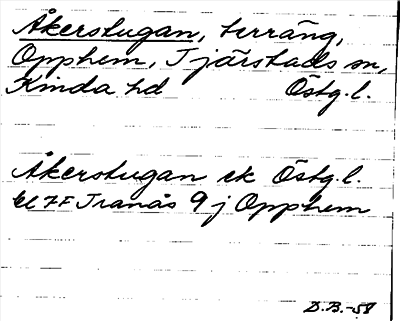 Åkerstugan, terräng,
Opphem, Tjärstads sn,
Kinda hd Östg.l.
Åkerstugan ek Östg.l.
bl 7F Tranås 9 j Opphem
D.B.-58